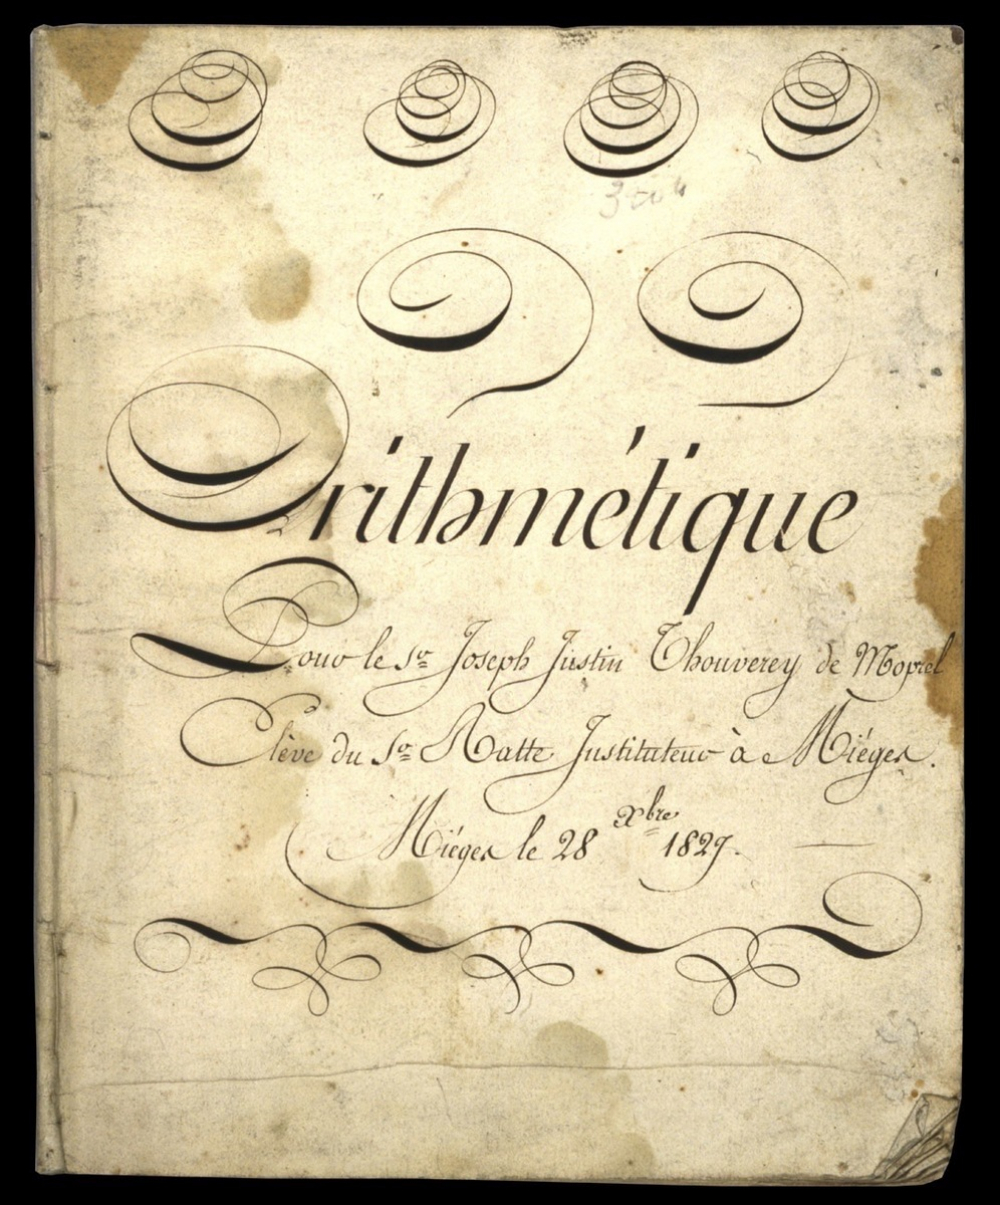 Arithmétique
Pour le Sr Joseph Justin Thouverey de
Elève du Sr Ratte Instituteur à Miéges.
Miéges le 28 Xbre 1829.